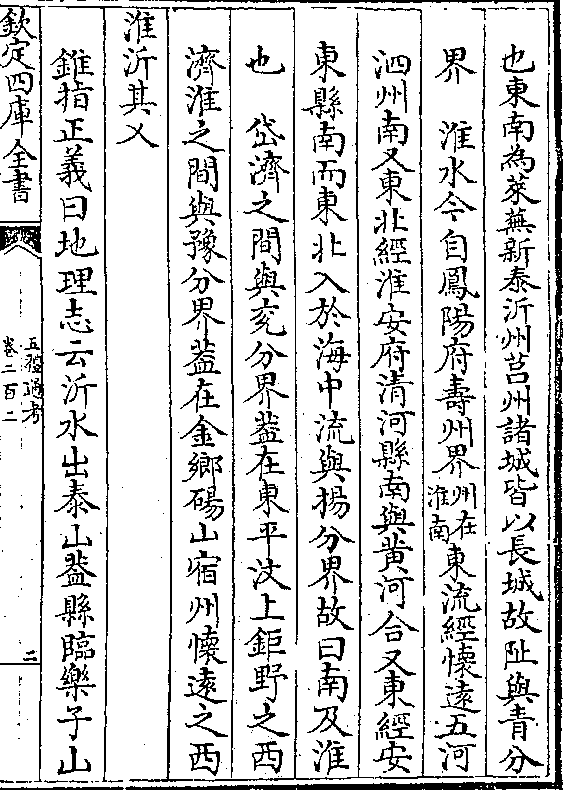 也東南為萊蕪新泰沂州莒州諸城皆以長城故阯與青分
界　淮水今自鳳陽府壽州界州在淮南東流經懷遠五河
泗州南又東北經淮安府清河縣南與黃河合又東經安
東縣南而東北入於海中流與揚分界故曰南及淮
也　岱濟之間與兖分界葢在東平汶上鉅野之西
濟淮之間與豫分界葢在金鄉碭山宿州懷遠之西
淮沂其乂
錐指正義曰地理志云沂水出泰山葢縣臨樂子山
欽定四庫全書
五禮通考
卷二百二
二